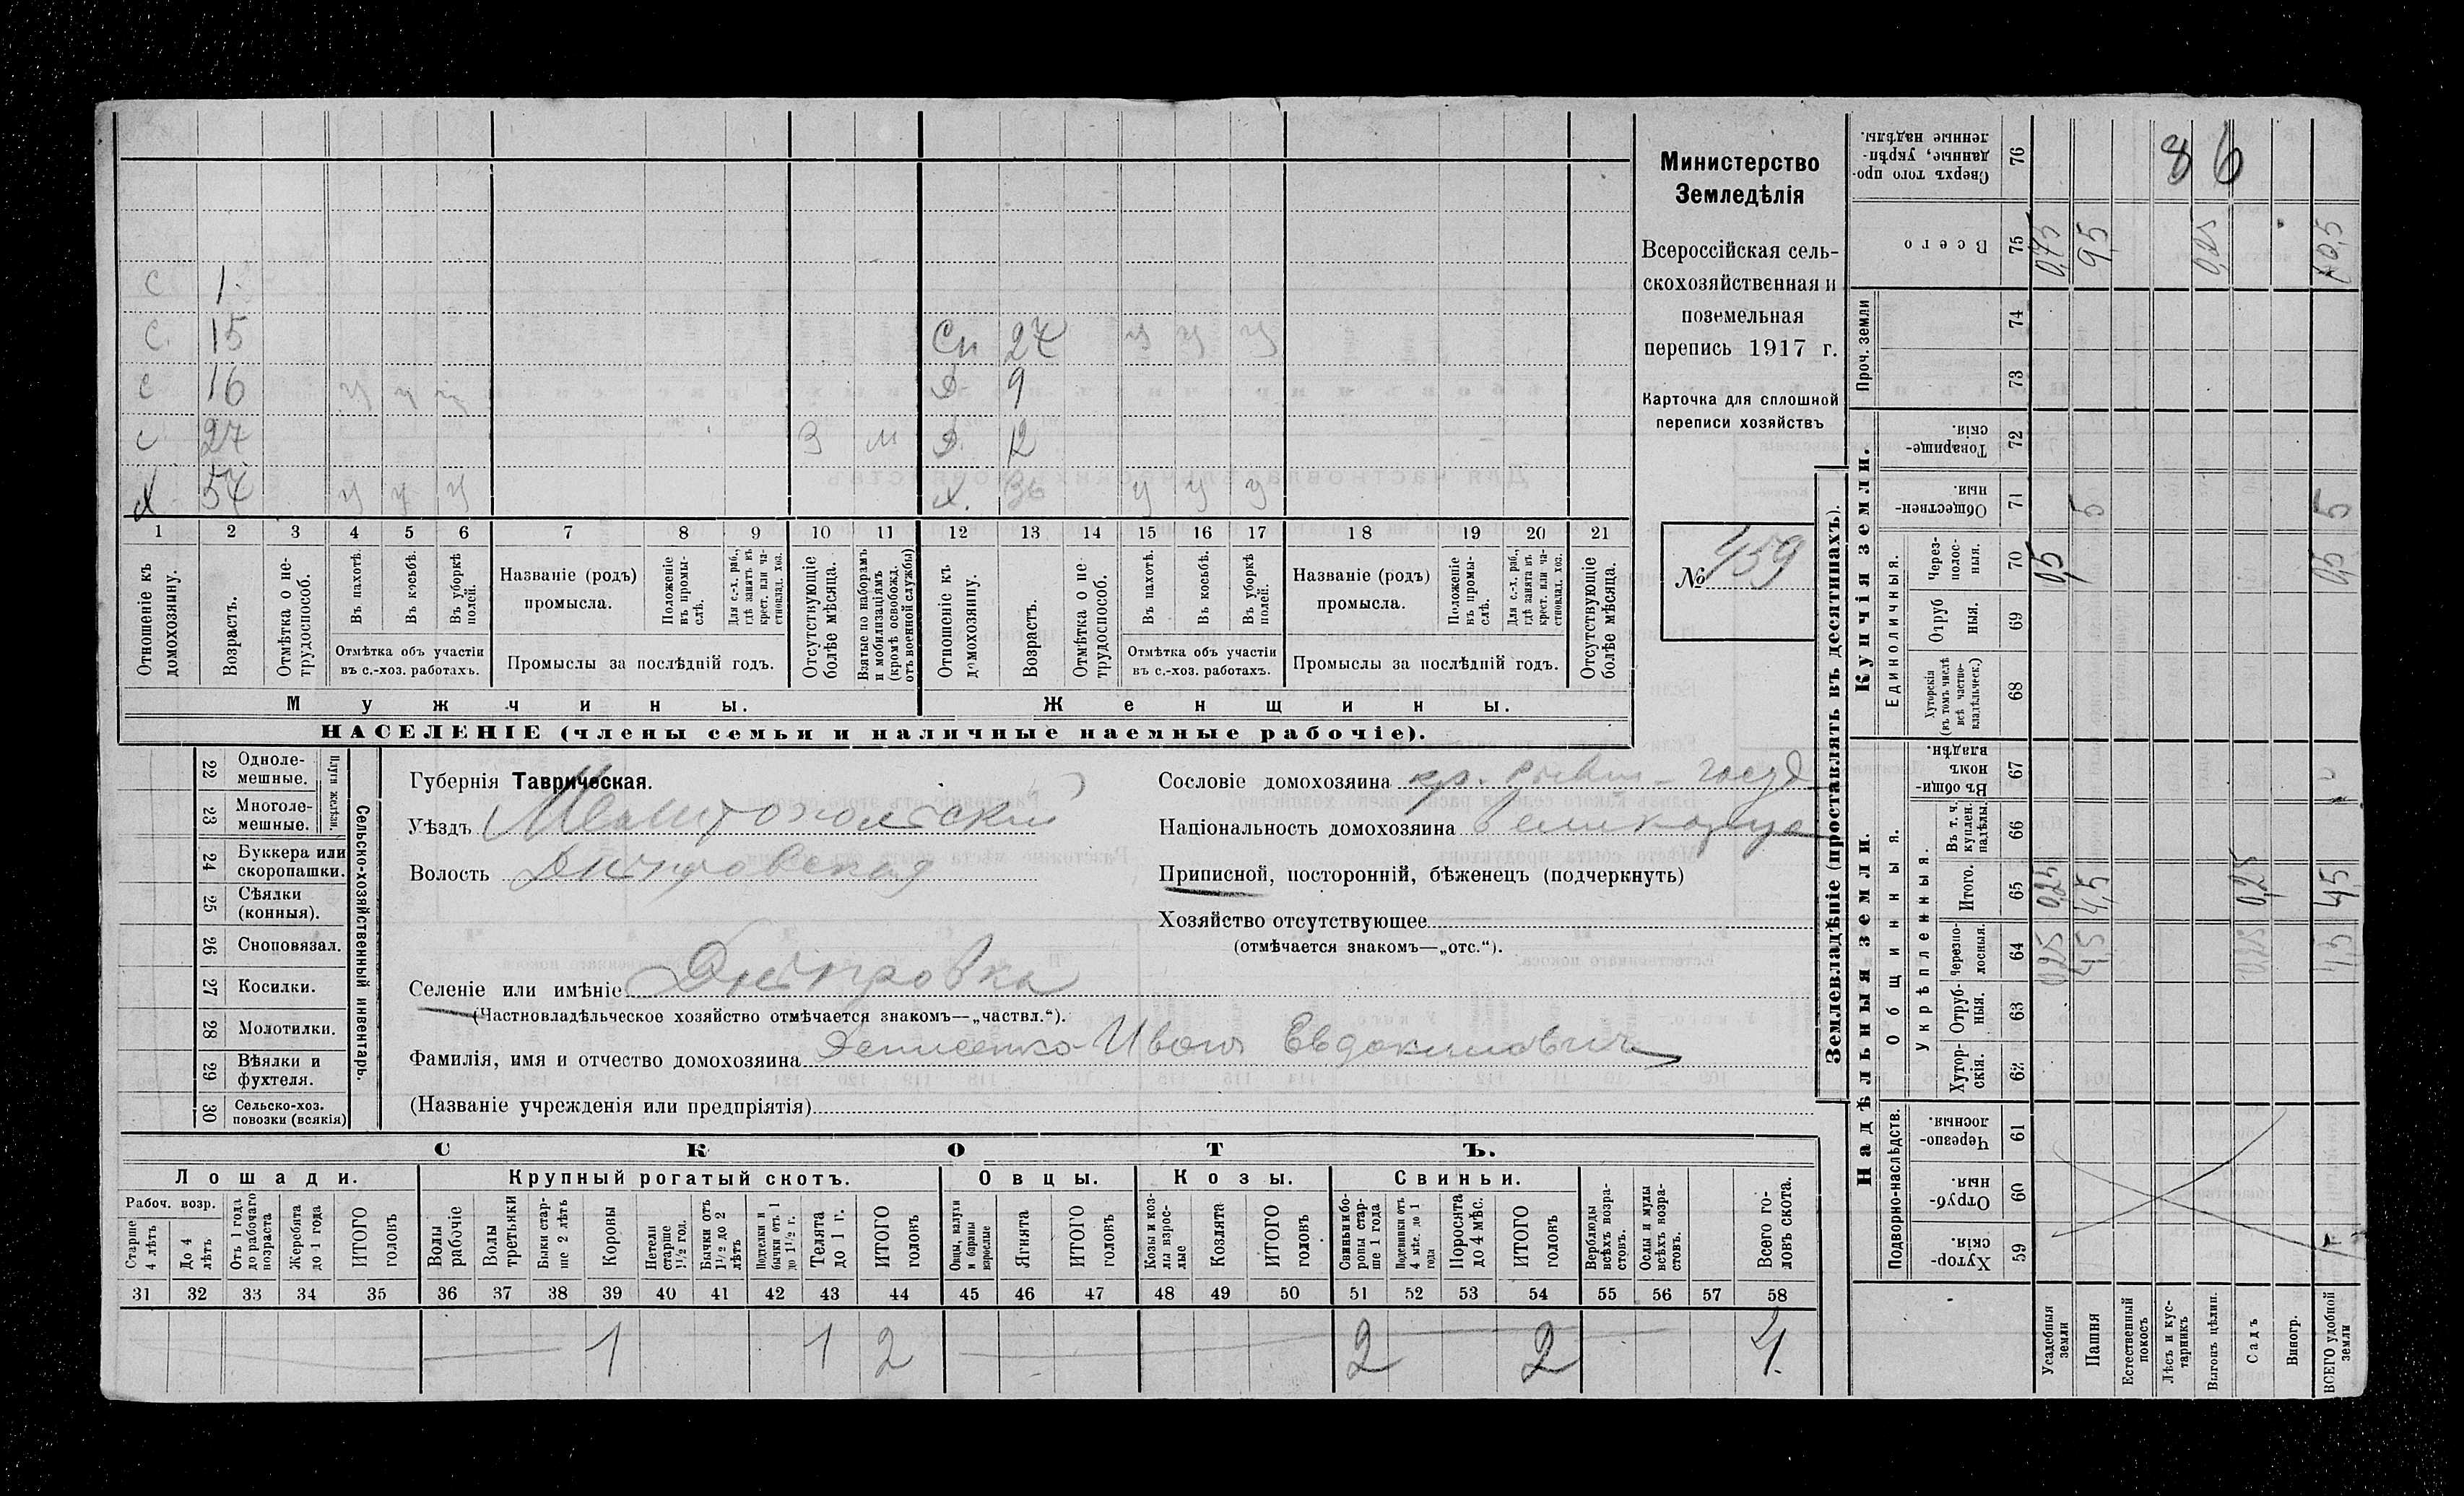 С 1
С. 15 Сп 27 у у у
С 16 у у у Д 9
С 27 З м Д. 12
Х 57 у у у Х. 36 у у у
1 2 3 4 5 6 7 8 9 10 11 12 13 14 15 16 17 18 19 20 21
Отношеніе къ домохозяину.
Возрастъ.
Отмѣтка о не-
трудоспособ.
Въ пахотѣ.
Въ косьбѣ.
Въ уборкѣ полей.
Отмѣтка объ участіи
въ с.-хоз. работахъ.
Названіе (родъ)
промысла.
Положеніе
въ промы-
слѣ.
Для с.-х. раб.,
гдѣ занятъ въ
крест. или ча-
стновлад. хоз.
Промыслы за послѣдній годъ.
Отсутствующіе
болѣе мѣсяца.
Взятые по наборамъ
и мобилизаціямъ
(кромѣ освобожд.
отъ военной службы)
Отношеніе къ
домохозяину.
Возрастъ.
Отмѣтка о не
трудоспособ.
Въ пахотѣ.
Въ косьбѣ.
Въ уборкѣ
полей.
Отмѣтка объ участіи
въ с.-хоз. работахъ.
Названіе (родъ)
промысла.
Положеніе
въ промы-
слѣ.
Для с.-х. раб.,
гдѣ занята въ
крест. или ча-
стновлад. хоз.
Промыслы за послѣдній годъ.
Отсутствующіе
болѣе мѣсяца.
Мужчины. Женщины.
НАСЕЛЕНІЕ (члены семьи и наличные наемные рабочіе).
Министерство
Земледѣлія
Всероссійская сель-
скохозяйственная и
поземельная
перепись 1917 г.
Карточка для сплошной
переписи хозяйствъ
№ 459
22 Одноле-
мешные.
23 Многоле-
мешные.
Плуги желѣзн.
24 Буккера или
скоропашки.
25 Сѣялки
(конныя).
26 Сноповязал.
27 Косилки.
28 Молотилки.
29 Вѣялки и
фухтеля.
30 Сельско-хоз.
повозки (всякія)
Сельско-хозяйственный инвентарь.
Губернія Таврическая.
Уѣздъ Мелитопольскій
Волость Днѣпровская
Сословіе домохозяина кр.
Національность домохозяина
Приписной, посторонній, бѣженецъ (подчеркнуть)
Хозяйство отсутствующее
(отмѣчается знакомъ—„отс.“).
Селеніе или имѣніе Днѣпровка
(Частновладѣльческое хозяйство отмѣчается знакомъ—„частвл.“).
Фамилія, имя и отчество домохозяина Денисенко Иванъ Евдокимовичъ
(Названіе учрежденія или предпріятія)
СКОТЪ.
Лошади. Крупный рогатый скотъ. Овцы. Козы. Свиньи.
Рабоч. возр.
Старше
4 лѣтъ
До 4
лѣтъ
Отъ 1 года
до рабочаго
возраста
Жеребята
до 1 года
ИТОГО
головъ
Волы
рабочіе
Волы
третьяки
Быки стар-
ше 2 лѣтъ
Коровы
Нетели
старше
1½ год.
Бычки отъ
1½ до 2
лѣтъ
Подтелки и
бычки отъ 1
до 1½ г.
Телята
до 1 г.
ИТОГО
головъ
Овцы, валухи
и бараны
взрослые
Ягнята
ИТОГО
головъ
Козы и коз-
лы взрос-
лые
Козлята
ИТОГО
головъ
Свиньи и бо-
ровы стар-
ше 1 года
Подсвинки отъ
4 мѣс. до 1
года
Поросята
до 4 мѣс.
ИТОГО
головъ
Верблюды
всѣхъ возра-
стовъ.
Ослы и мулы
всѣхъ возра-
стовъ.
Всего го-
ловъ скота.
31 32 33 34 35 36 37 38 39 40 41 42 43 44 45 46 47 48 49 50 51 52 53 54 55 56 57 58
1 1 2 2 2 4.
Землевладѣніе (проставлять въ десятинахъ).
Сверхъ того про-
данные, укрѣп-
ленные надѣлы.
76
86
Всего
75 0,75 9,5 0,25 10,5
Купчія земли.
Проч. земли
74
73
Товарище-
скія.
72
Обществен-
ныя.
71 5 5
Единоличныя.
Через-
полос-
ныя.
70 0,5 0,5
Отруб
ныя.
69
Хуторскія
(въ томъ числѣ
всѣ частно-
владѣльческ.)
68
Надѣльныя земли.
Общинныя.
Въ общи-
номъ
владѣн.
67
Укрѣпленныя.
Въ т. ч.
куплен.
надѣлы.
66
Итого.
65 0,25 4,5 0,25 4,5
Черезпо-
лосныя.
64 0,25 4,5 0,25 4,5
Отруб-
ныя.
63
Хутор-
скія.
62
Подворно-наслѣдств.
Черезпо-
лосныя
61
Отруб-
ныя.
60
Хутор-
скія.
59
Усадебныя
земли
Пашня
Естественный
покосъ
Лѣсъ и кус-
тарникъ
Выгонъ цѣлин.
Садъ
Виногр.
ВСЕГО удобной
земли